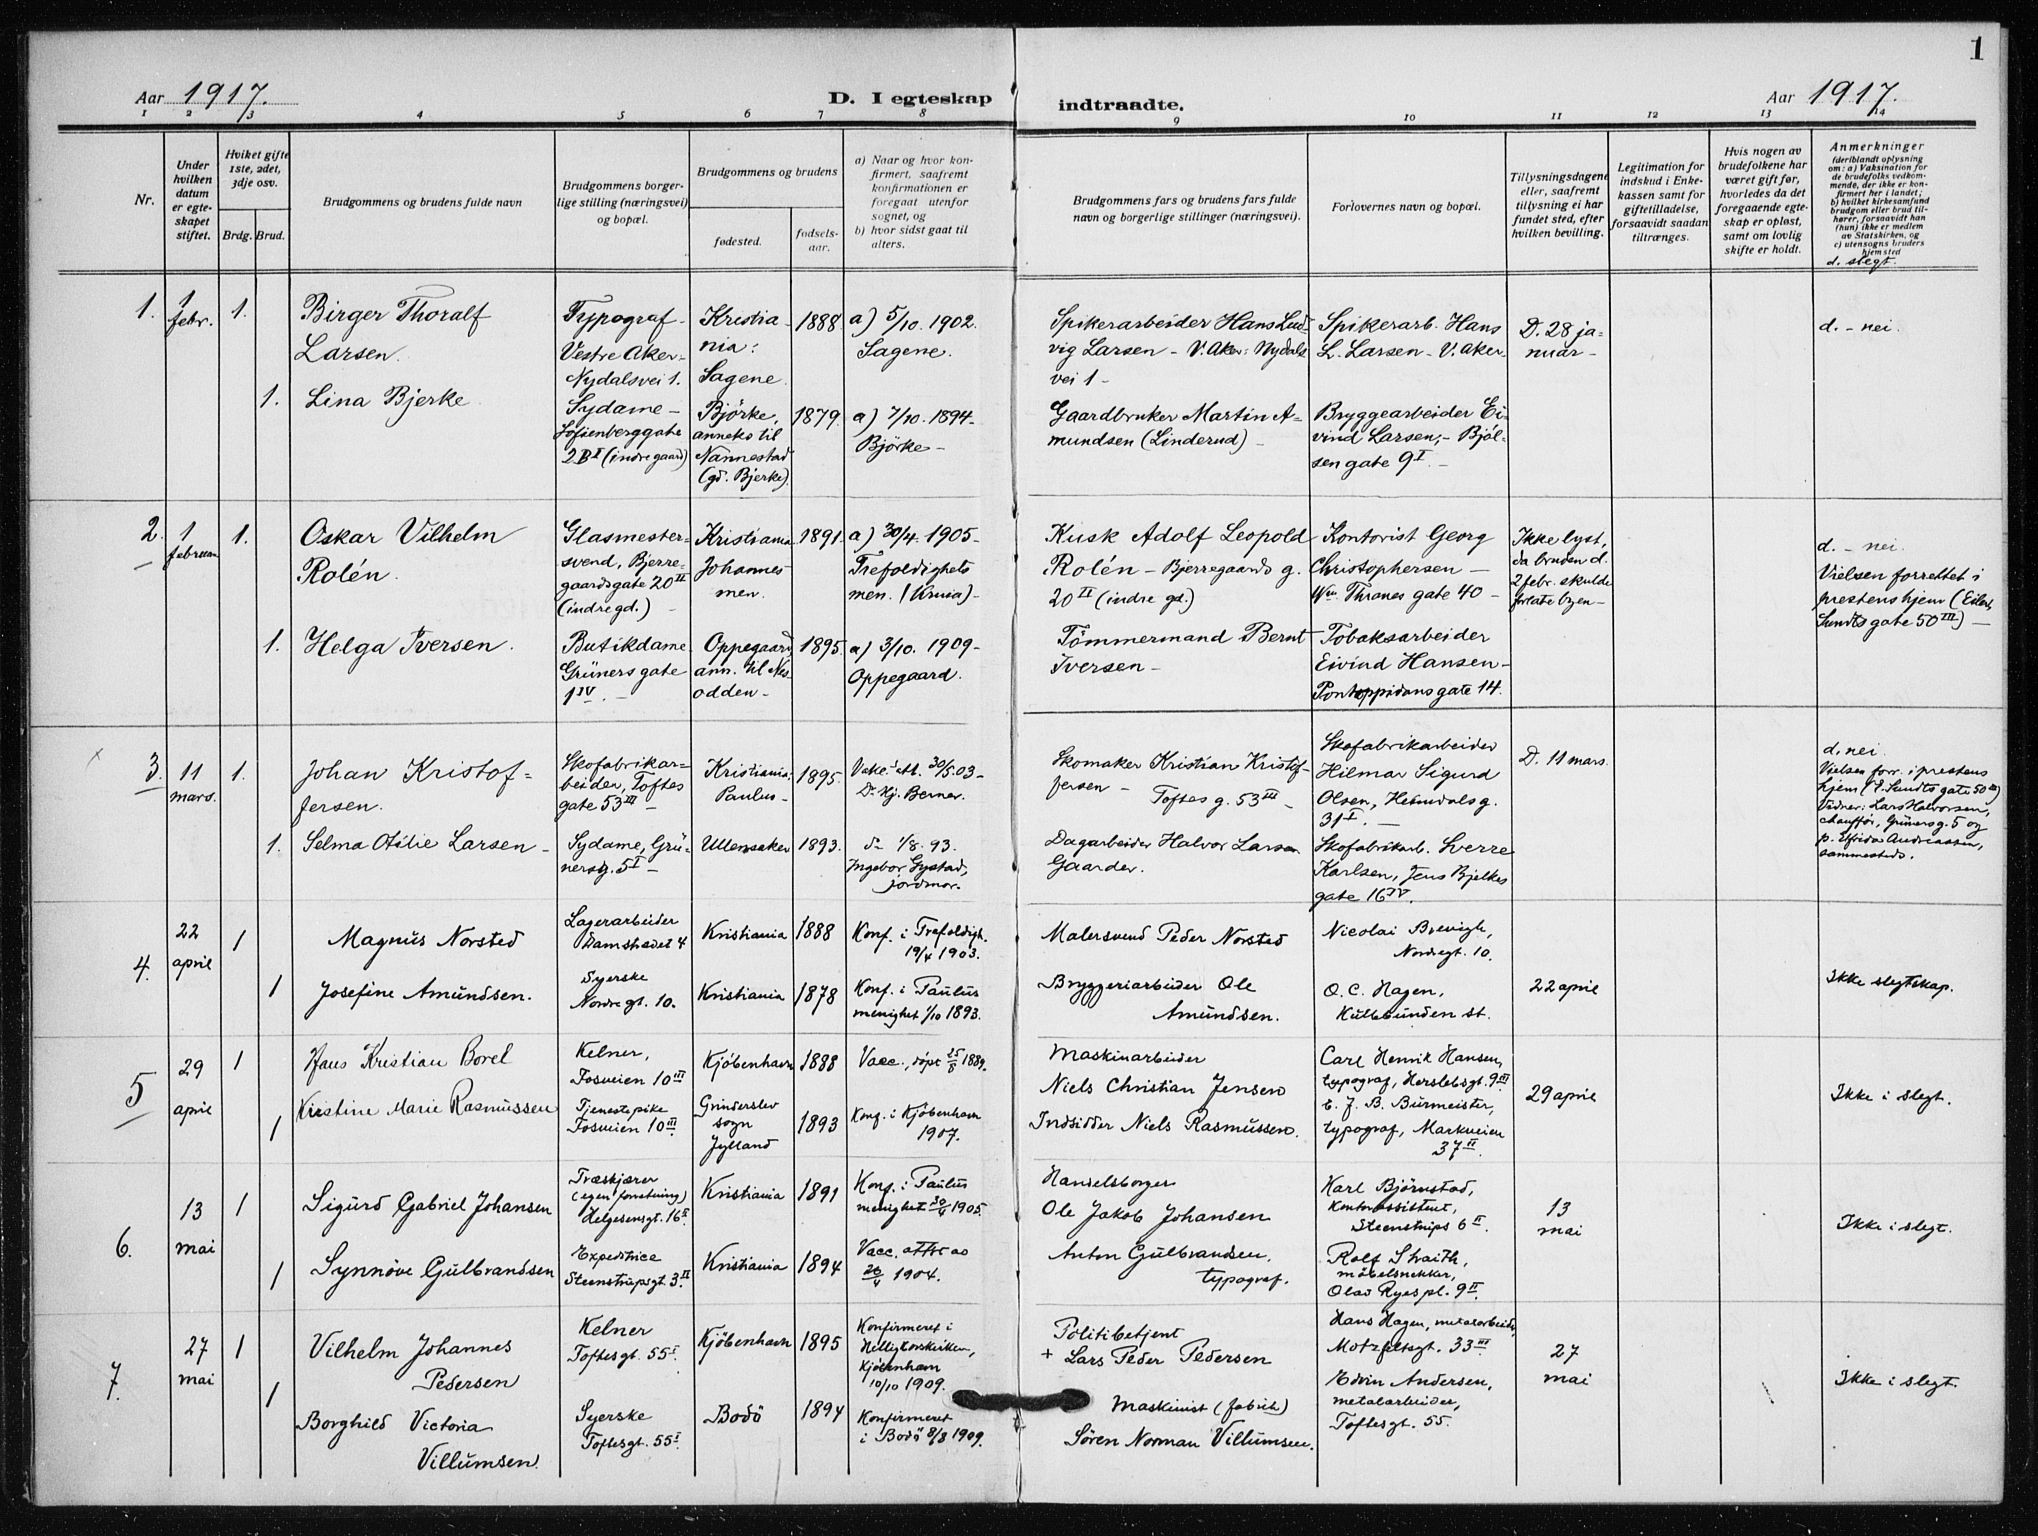 1
Aar 1917.
D. I egteskap
indtraadte.
Aar 1917.
1 2 3 4 5 6 7 8
9 10 11 12 13 14
Nr.
Under
hvilken
datum
er egte-
skapet
stiftet.
Hviket gifte
1ste, 2det,
3dje osv.
Brdg. Brud.
Brudgommens og brudens fulde navn
Brudgommens borger-
lige stilling (næringsvei)
og bopæl.
Brudgommens og brudens
fødested.
fødsels-
aar.
a) Naar og hvor kon-
firmert, saafremt
konfirmationen er
foregaat utenfor
sognet, og
b) hvor sidst gaat til
alters.
Brudgommens fars og brudens fars fulde
navn og borgerlige stillinger (næringsvei).
Forlovernes navn og bopæl.
Tillysningsdagene
eller, saafremt
tillysning ei har
fundet sted, efter
hvilken bevilling.
Legitimation for
indskud i Enke-
kassen samt for
giftetilladelse,
forsaavidt saadan
tiltrænges.
Hvis nogen av
brudefolkene har
været gift før,
hvorledes da det
foregaaende egte-
skap er opløst,
samt om lovlig
skifte er holdt.
Anmerkninger
(deriblandt oplysning
om: a) Vaksination for
de brudefolks vedkom-
mende, der ikke er kon-
firmert her i landet;
b) hvilket kirkesamfund
brudgom eller brud til-
hører, forsaavidt han
(hun) ikke er medlem
av Statskirken, og
c) utensogns bruders
hjemsted
d. slegt.
1.
1
febr.
1.
Birger Thoralf
Larsen.
Typograf -
Vestre Aker -
Nydalsvei 1.
Kristia-
nia:
Sagene.
1888
a) 5/10. 1902.
Sagene.
Spikerarbeider Hans Lud-
vig Larsen - V. Aker: Nydals-
vei 1 -
Spikerarb. Hans
L. Larsen - V. Aker -
D. 28 ja-
nuar -
d. - nei.
1.
Lina Bjerke
Sydame -
Sofienberggate
2 B I (indre gaard)
Bjørke,
anneks til
Nannestad
(gd. Bjerke)
1879.
a) 7/10. 1894 -
Bjørke -
Gaardbruker Martin A-
mundsen (Linderud) -
Bryggearbeider Ei-
vind Larsen, - Bjøl-
sen gate 9 I. -
2.
1
februar
1.
Oskar Vilhelm
Rolén.
Glasmester-
svend, Bjerre-
gaardsgate 20 II
(indre gd.) -
Kristiania
Johannes
men.
1891.
a) 30/4. 1905 -
Trefoldighets
men. (Krnia) -
Kusk Adolf Leopold
Rolén - Bjerregaards g.
20 II (indre gd.)
Kontorist Georg
Christophersen -
Wm. Thranes gate 40 -
Ikke lyst,
da bruden d.
2 febr. skulde
forlate byen -
d. - nei.
Vielsen forrettet i
prestens hjem (Eilert
Sundts gate 50 III) -
1.
Helga Iversen.
Butikdame
Grüners gate
1 IV. -
Oppegaard
ann. til Nes-
odden -
1895.
a) 3/10. 1909 -
Oppegaard.
Tömmermand Bernt
Iversen -
Tobaksarbeider
Eivind Hansen -
Pontoppidans gate 14.
3.
11
mars.
1.
Johan Kristof-
fersen.
Skofabrikar-
beider, Toftes
gate 53 III -
Kristiania:
Paulus -
1895.
Vakc. att. 30/5.03 -
Dr. Hj. Berner.
Skomaker Kristian Kristof-
fersen - Toftes g. 53 III -
Skofabrikarbeider
Hilmar Sigurd
Olsen, Heimdals g.
31 I. -
D. 11 mars.
d. nei.
Vielsen forr. i prestens
hjem (E. Sundts gate 50 III)
Vidner: Lars Halvorsen,
chauffør, Grüners g. 5 og
p. Elfrida Andreassen,
sammesteds.
1.
Selma Otilie Larsen -
Sydame, Grü-
nersg. 5 I -
Ullensaker
1893.
do 1/8. 93.
Ingebor Systad,
jordmor.
Dagarbeider Halvor Larsen
Gaarder.
Skofabrikarb. Sverre
Karlsen, Jens Bjelkes
gate 16 IV.
4.
22
april
1
Magnus Norsted
Lagerarbeider
Damstredet 4
Kristiania
1888
Konf. i Trefoldigh.
19/4 1903.
Malersvend Peder Norsted
Nicolai Brevigh,
Nordregt. 10.
1
Josefine Amundsen.
Syerske
Nordregt. 10.
Kristiania
1878
Konf. i Paulus
menighet 1/10 1893.
Bryggeriarbeider Ole
Amundsen.
O. C. Hagen,
Kullebunden st.
22 april
Ikke slegtskap.
5
29
april
1
Hans Kristian Borel
Kelner,
Fosveien 10 III
Kjöbenhavn
1888
Vacc., døpt 25/8 1889.
Maskinarbeider
Niels Christian Jensen
Carl Henrik Hansen,
typograf, Herslebsgt. 9 III
29 april
Ikke i slegt.
1
Kirstine Marie Rasmussen
Tjenestepike
Fosveien 10 III.
Grinderslev
sogn
Jylland
1893
Konf. i Kjöbenhavn
1907.
Indsidder Niels Rasmussen.
C. J. B. Burmeister,
typograf, Markveien
37 II.
6.
13
mai
1
Sigurd Gabriel Johansen
Træskjærer
(egen forretning)
Helgesensgt. 16 II
Kristiania
1891
Konf. i Paulus
menighet 30/4 1905.
Handelsborger
Ole Jakob Johansen
Karl Björnstad,
Kontorassistent,
Steenstrups 6 II.
13
mai
Ikke i slegt.
1
Synnöve Gulbrandsen
Expeditrice
Steenstrupsgt. 3 II
Kristiania
1894
Vacc. attest ao
26/4 1904.
Anton Gulbrandsen.
typograf.
Rolf
möbelsnekker,
Olav Ryes pl. 9 II.
7.
27
mai
1
Vilhelm Johannes
Pedersen
Kelner
Toftesgt. 55 I.
Kjöbenhavn
1895
Konfirmeret i
Helligkorskirken,
Kjöbenhavn
10/10 1909.
Politibetjent
+ Lars Peder Pedersen
Hans Hagen, metalarbeider,
Motzfeltsgt. 33 III.
27
mai
Ikke i slegt.
1
Borghild Victoria
Villumsen
Syerske
Toftesgt. 55 I.
Bodö
1894
Konfirmeret
i Bodö 8/8 1909.
Maskinist (fabrik)
Sören Norman Villumsen.
Edvin Andersen,
metalarbeider,
Toftesgt. 55.